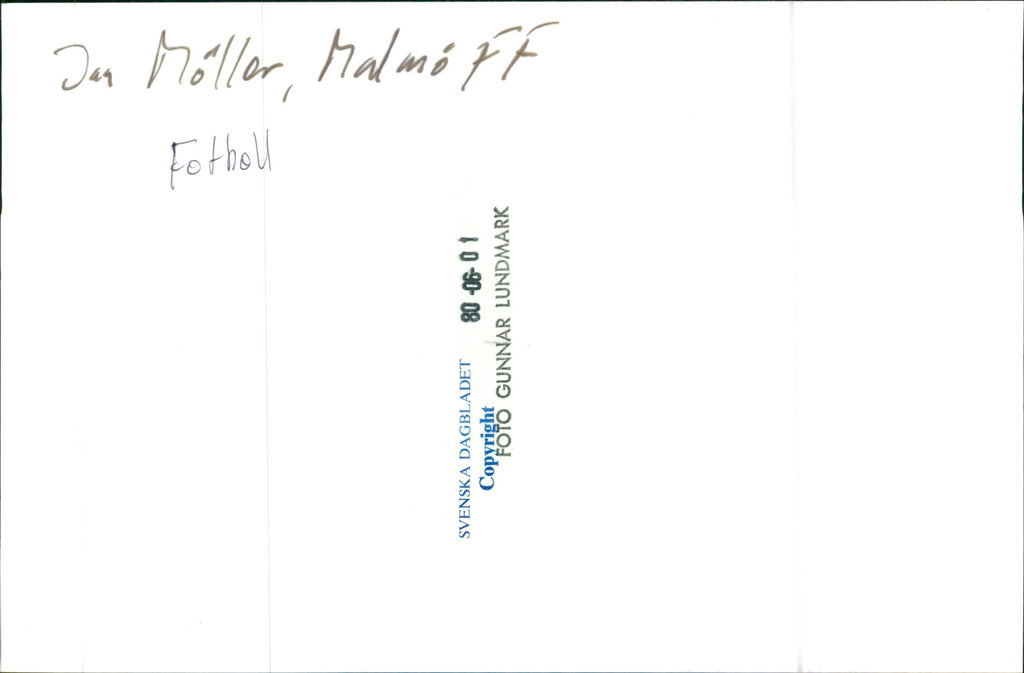 Jan Möller, Malmö FF
Fotboll
SVENSKA DAGBLADET 80-06-01
Copyright
FOTO GUNNAR LUNDMARK